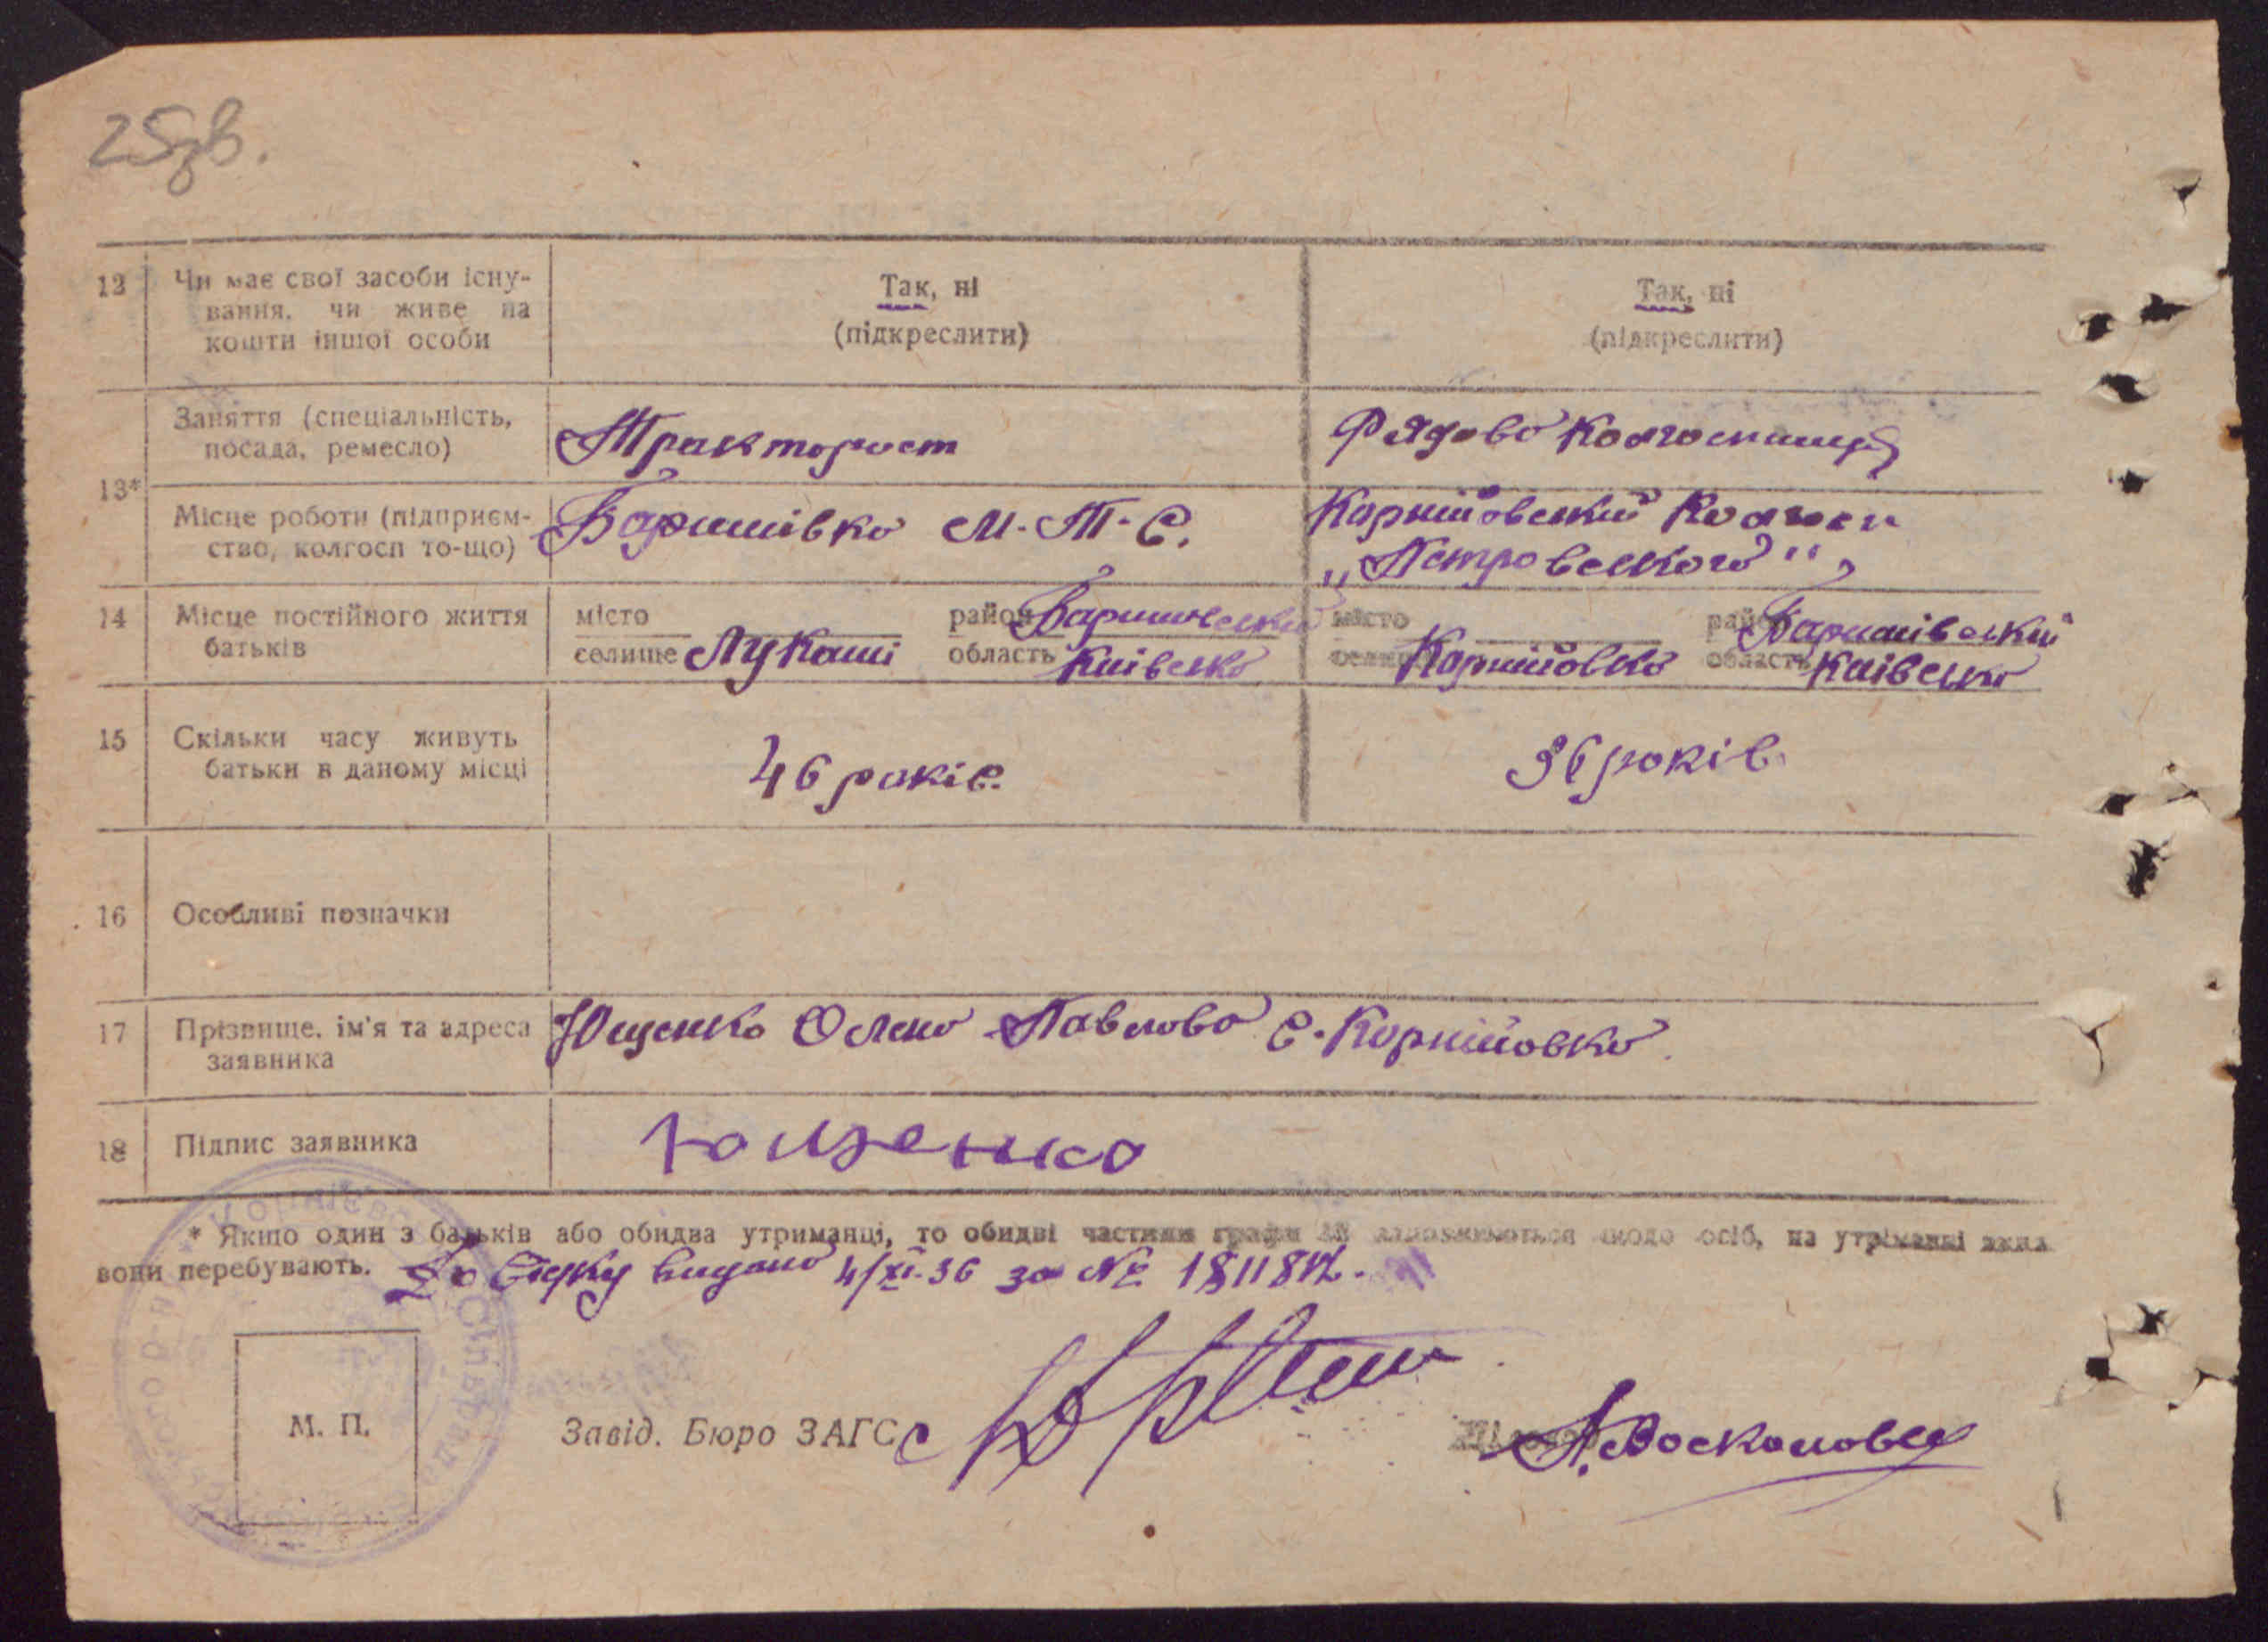 25зв.
12 Чи має свої засоби існу-
вання, чи живе на
кошти іншої особи
Так, ні
(підкреслити)
Так, ні
(підкреслити)
13*
Заняття (спеціальність,
посада, ремесло)
Тракторист
Рядово колгоспниця
Місце роботи (підприєм-
ство, колгосп то-що)
Баришівко М.Т.С.
Корнійовський Колгосп
„Петровського"
14 Місце постійного життя
батьків
місто
селище Лукаші
район Баришевський
область Київсько
місто
селище Корнійовко
район Баришівський
область Київсько
15 Скільки часу живуть
батьки в даному місці
46 років.
36 років.
16 Особливі позначки
17 Прізвище, ім'я та адреса
заявника
Ющенко Олено Павлово с. Корнійовко.
18 Підпис заявника
Ющенко
* Якщо один з батьків або обидва утриманці, то обидві частини графи щодо осіб, на утриманні яких
вони перебувають.
видано 4/XI-36 за №
М. П.
Завід. Бюро ЗАГС